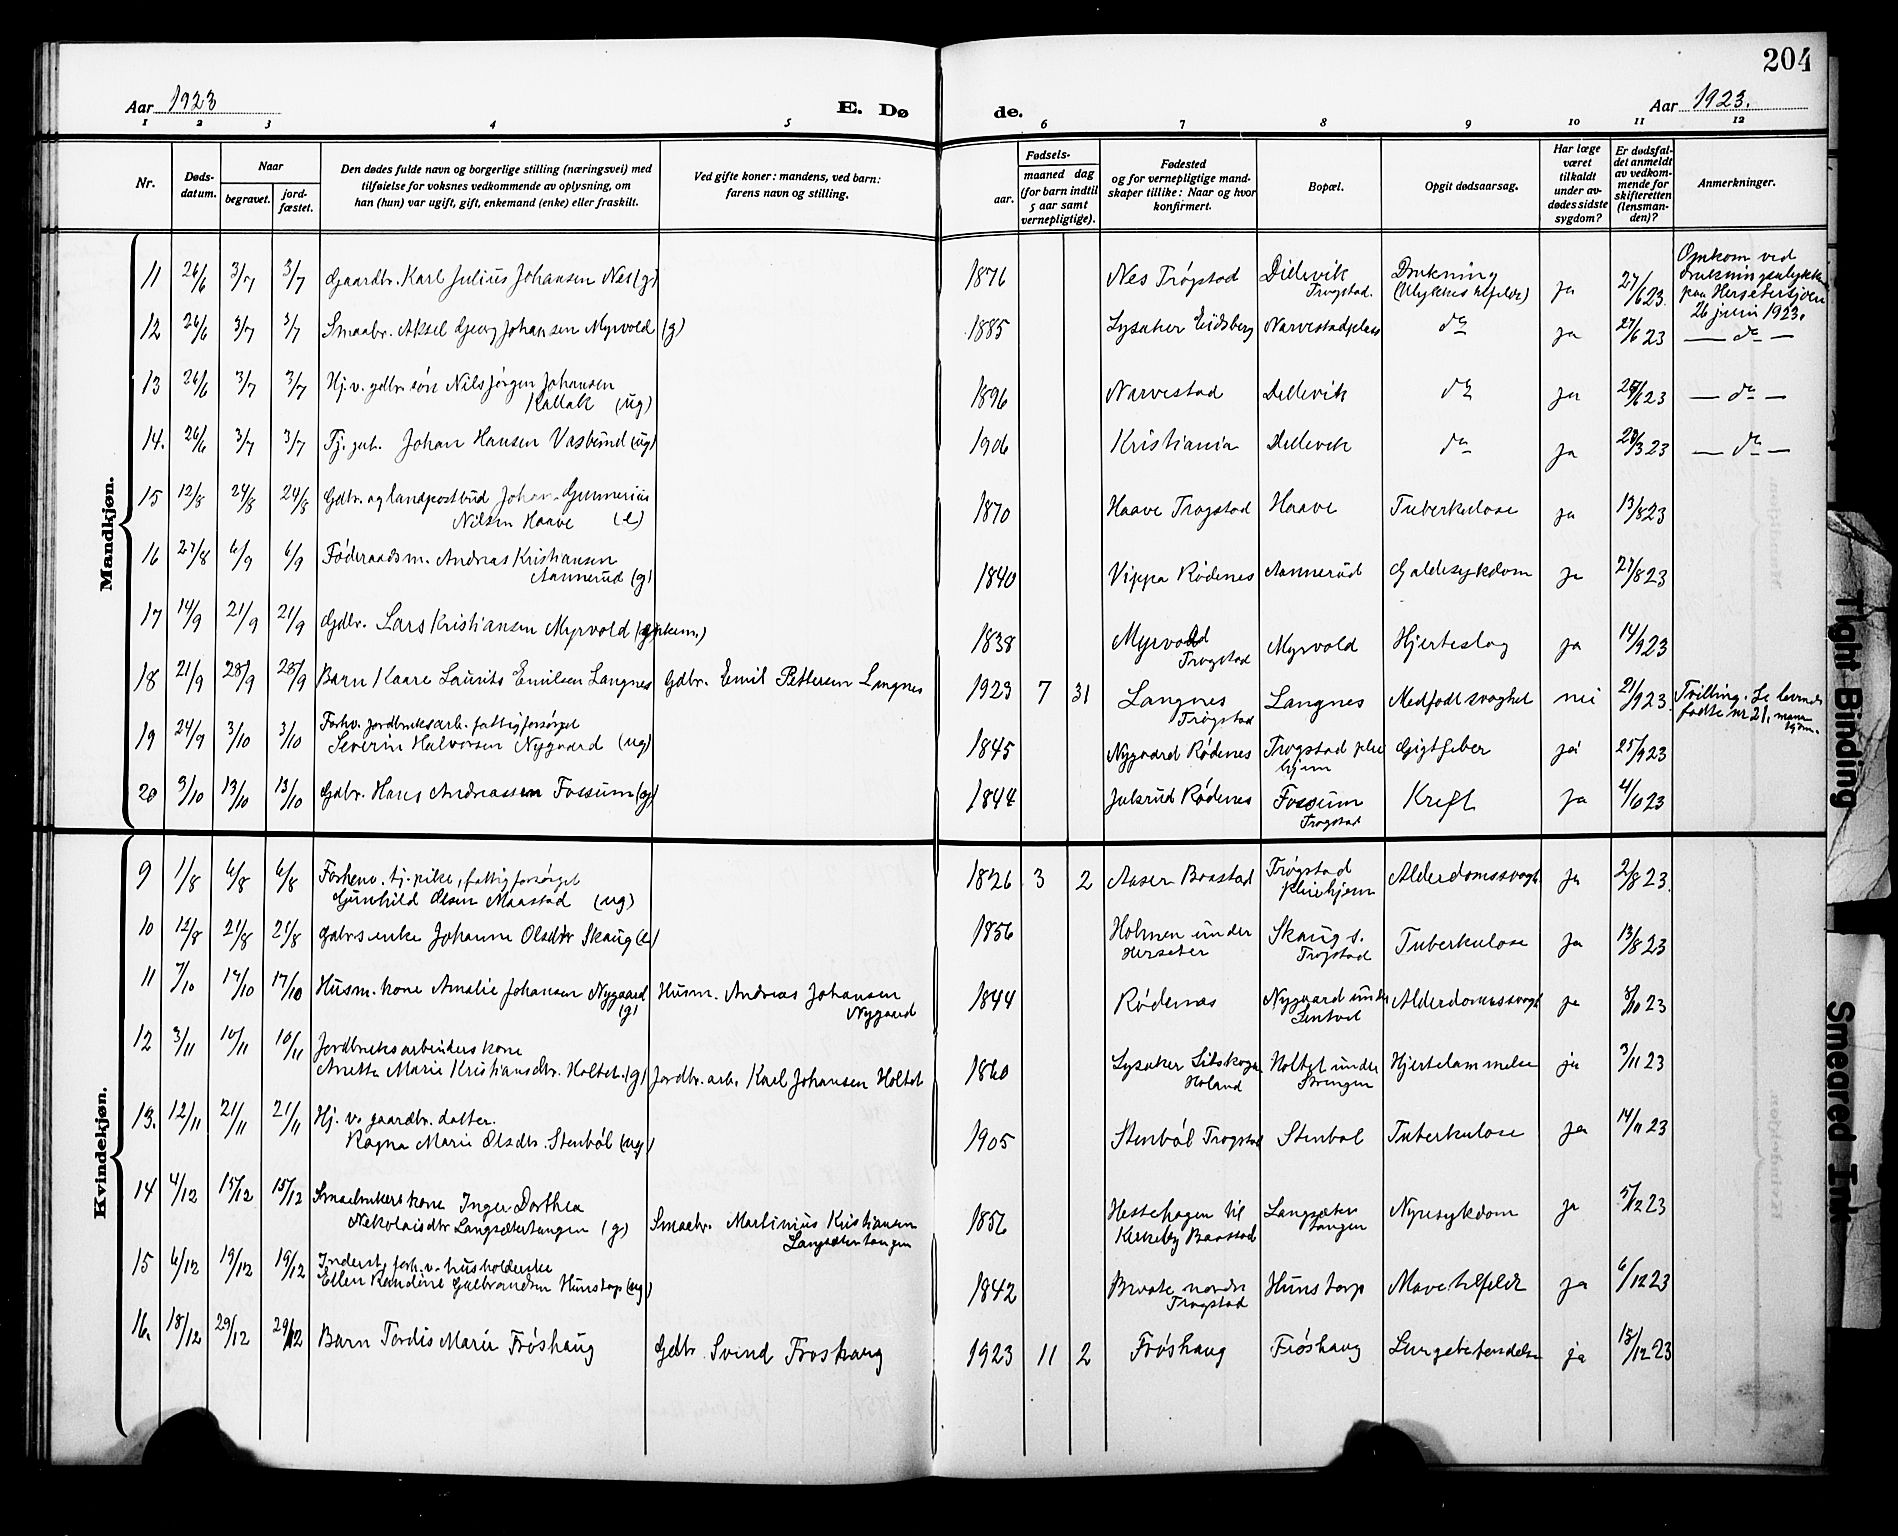 204
Aar 1923
E. Dø
de.
Aar 1923.
1 2 3 4 5 6 7 8 9 10 11 12
Nr.
Døds-
datum.
Naar
begravet.
jord-
fæstet.
Den dødes fulde navn og borgerlige stilling (næringsvei) med
tilføielse for voksnes vedkommende av oplysning, om
han (hun) var ugift, gift, enkemand (enke) eller fraskilt.
Ved gifte koner: mandens, ved barn:
farens navn og stilling.
Fødsels-
aar.
maaned dag
(for barn indtil
5 aar samt
vernepligtige).
Fødested
og for vernepligtige mand-
skaper tillike: Naar og hvor
konfirmert.
Bopæl.
Opgit dødsaarsag.
Har læge
været
tilkaldt
under av-
dødes sidste
sygdom?
Er dødsfal-
det anmeldt
av vedkom-
mende for
skifteretten
(lensman-
den)?
Anmerkninger.
Mandkjøn.
11 26/6 3/7 3/7 Gaardbr. Karl Julius Johansen Nes (g) 1876 Nes Trøgstad Dillevik Trøgstad. Drukning (Ulykkestilfelde) ja 27/6 23. Omkom ved drukningsulykke paa Hersetersjøen 26 juni 1923.
12 26/6 3/7 3/7 Smaabr. Aksel Georg Johansen Myrvold (g) 1885 Lysaker Eidsberg Narvestadplass do ja 27/6 23 — do —
13 26/6 3/7 3/7 Hj. v. gdbr. søn Nils Jørgen Johansen Kallak (ug) 1896 Narvestad Dillevik do ja 23 — do —
14. 26/6 3/7 3/7 Tj. gut. Johan Hansen Vasbund (ug) 1906 Kristiania Dillevik do ja 23 — do —
15 12/8 24/8 24/8 Gdbr. og landpostbud Johan Gunnerius Nilsen Haave (e) 1870 Haave Trøgstad Haave Tuberkulose ja 13/8 23
16 27/8 6/9 6/9 Føderaadsm. Andreas Kristiansen Aannerud (g) 1840 Vippa Rødenes Aannerud Galdesykdom ja 27/8 23
17 14/9 21/9 21/9 Gdbr. Lars Kristiansen Myrvold 1838 Myrvold Trøgstad Myrvold Hjerteslag ja 14/9 23
18 21/9 28/9 28/9 Barn Kaare Laurits Emilsen Langnes Gdbr. Emil Pettersen Langnes 1923 7 31 Langnes Trøgstad Langnes Medfødt svaghet nei 21/9 23 Tvilling. Se levende fødte nr 21, mankjøn.
19 24/9 3/10 3/10 Forhv. jordbruksarb. fattigforsørget Severin Halvorsen Nygaard (ug) 1845 Nygaard Rødenes Trøgstad pleiehjem Gigtfeber ja 25/9 23
20 3/10 13/10 13/10 Gdbr. Hans Andreassen Fossum (g) 1844 Julsrud Rødenes Fossum Trøgstad Kreft ja 23
Kvindekjøn.
9 1/8 6/8 6/8 Forhenv. tj. pike, fattigforsørget Gunhild Olsen Maastad (ug) 1826 3 2 Aasen Baastad Trøgstad pleiehjem Alderdomssvagh ja 2/8 23.
10 12/8 21/8 21/8 Gdbrs enke Johanne Olsdtr Skaug (e) 1856 Holmen under Herseter Skaug s. Trøgstad Tuberkulose ja 13/8 23
11 7/10 17/10 17/10 Husm. kone Amalie Johansen Nygaard (g) Husm. Andreas Johansen Nygaard 1844 Rødenes Nygaard under Sentvet Alderdomssvagh ja 8/10 23
12 3/11 10/11 10/11 Jordbruksarbeiders kone Anette Marie Kristiansdtr. Holtet. (g) Jordbr. arb. Karl Johansen Holtet 1860 Lysaker Setskogen Høland Holtet under Strengen Hjertelammelse ja 3/11 23
13. 12/11 21/11 21/11 Hj. v. gaardbr. datter. Ragna Marie Olsdtr. Stenbøl (ug) 1905 Stenbøl Trøgstad Stenbøl Tuberkulose ja 14/11 23
14 4/12 15/12 15/12 Smaabrukers kone Inger Dorthea Nikolaisdtr Langsætertangen (g) Smaabr. Martinius Kristiansen Langsætertangen 1856 Hestehagen til Kirkeby Baastad Langsætertangen Nyresykdom ja 5/12 23
15 6/12 19/12 19/12 Inderst, forh. v. husholderske Ellen Randine Gulbrandsen Hunstorp (ug) 1842 Braate nordre Trøgstad Hunstorp Mavetilfelde ja 6/12 23
16. 18/12 29/12 29/12 Barn Tordis Marie Frøshaug Gdbr. Svend Frøshaug 1923 11 2 Frøshaug Frøshaug Lungebetendelse ja 18/12 23
Tight Binding
Smeared Ink